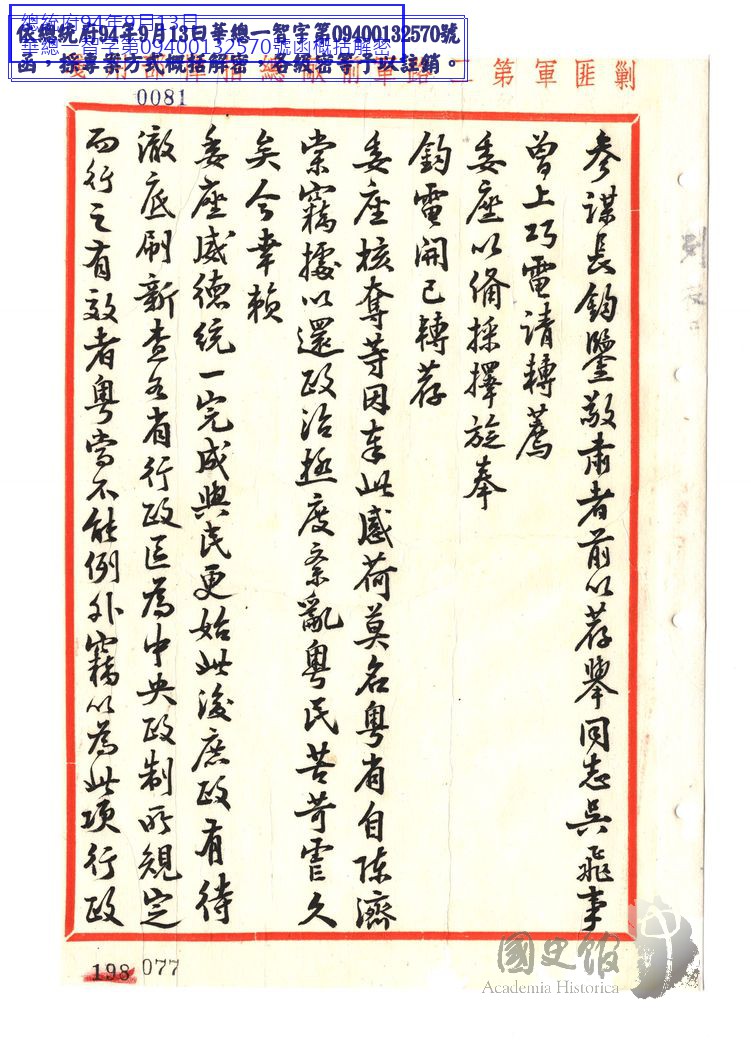 總統府94年9月13日
華總一智字第09400132570號函概括解密
依總統府94年9月13日華總一智字第09400132570號
函，採專案方式概括解密，各級密等予以註銷。
剿匪軍第二路軍前敵總指揮
0081
參謀長鈞鑒敬肅者前以荐舉同志吳飛事
曾上巧電請轉薦
委座以備採擇旋奉
鈞電開已轉荐
委座核奪等因奉此感荷莫名粵省自陳濟
棠竊據以還政治極度紊亂粵民苦苛霍久
矣今幸賴
委座威德統一完成與民更始此後庶政有待
澈底刷新查各省行政區為中央政制所規定
而行之有效者粵當不能例外竊以為此項行政
198 077
國史館
Academia Historica